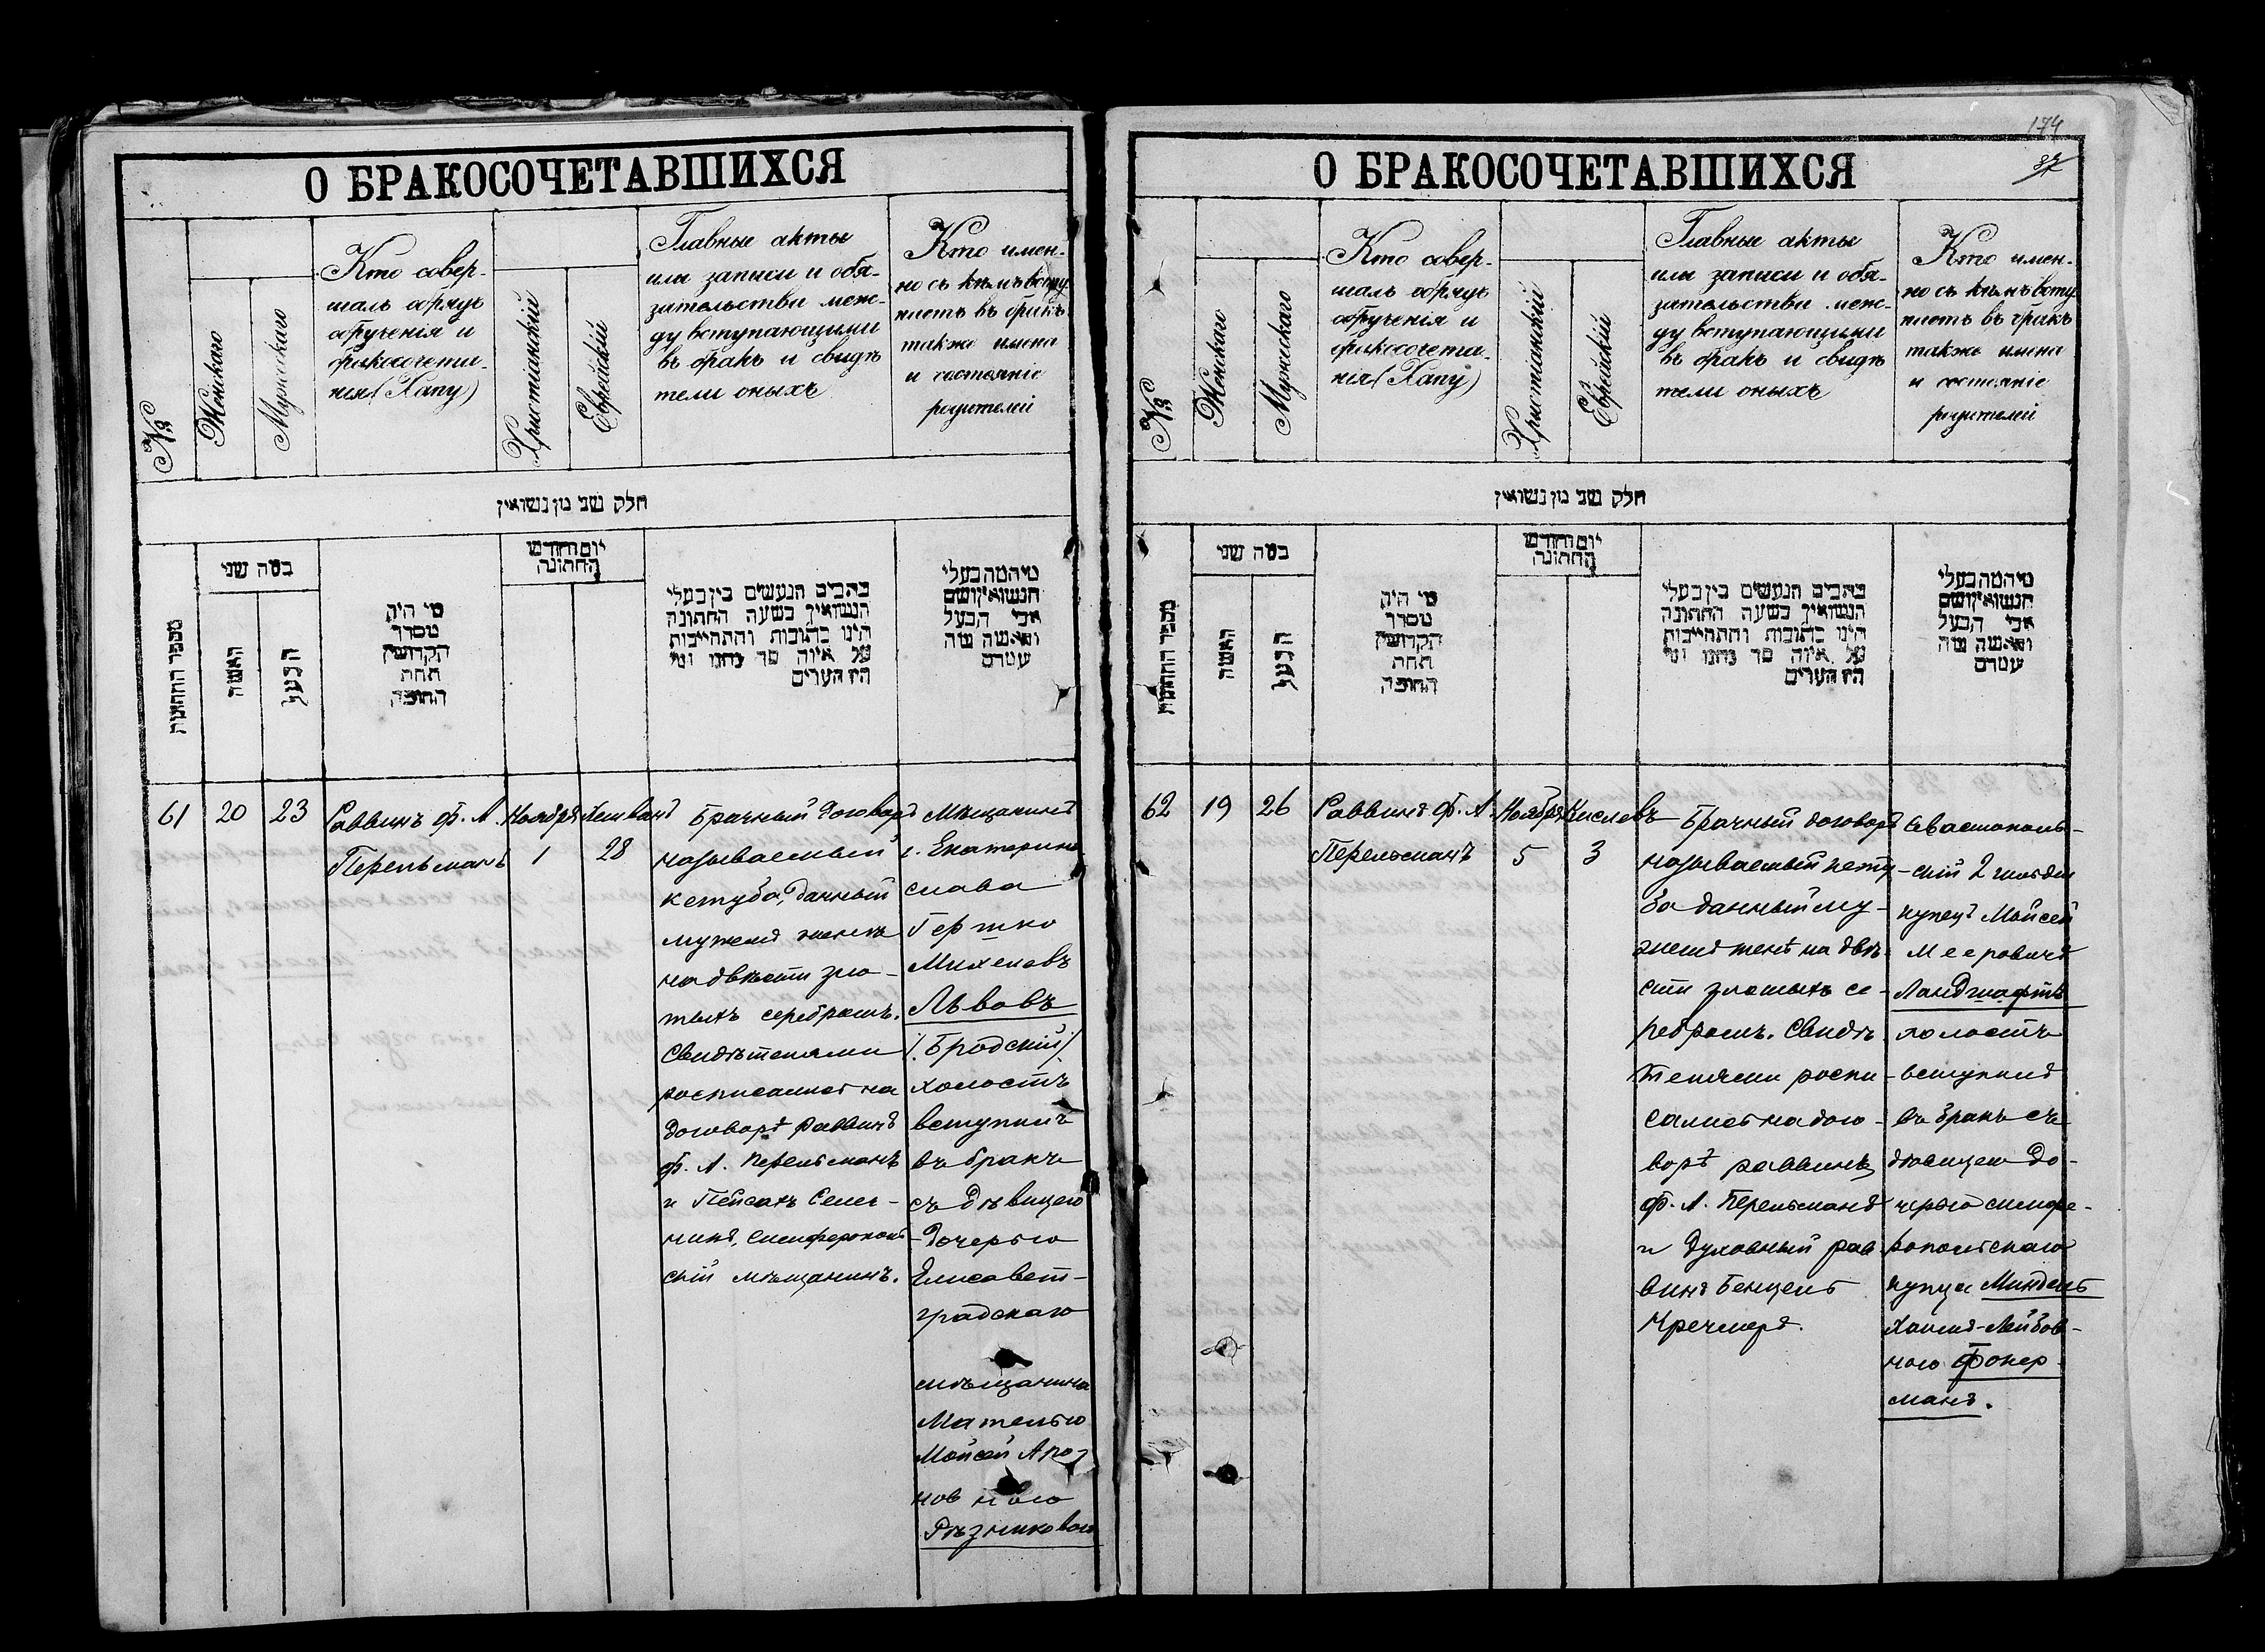 О БРАКОСОЧЕТАВШИХСЯ
№
Женскаго
Мужескаго
Кто совер-
шалъ обрядъ
обрученія и
бракосочета-
нія (Хапу)
Христіанскій
Еврейскій
Главные акты
или записи и обя-
зательства меж-
ду вступающими
въ бракъ и свидѣ
тели оныхъ
Кто имен-
но съ кѣмъ всту
паетъ въ бракъ
также имена
и состояніе
родителей
חלק שני מן נשואין
מספר החתונות
האשה
הבעל
מי היה
מסדר
הקדושין
תחת
החופה
יום וחודש
החתונה
הנעשים בין בעלי
הנשואין בשעה החתונה
הינו כתובות והתחייבות
61
20
23
Раввинъ Ф. А.
Перельманъ
Ноября
1
Хешванъ
28
Брачный договоръ
называемый
кетуба, данный
мужемъ женѣ
на двѣсти зло-
тыхъ серебромъ.
Свидѣтелями
росписались на
договорѣ раввинъ
Ф. А. Перельманъ
и Пейсахъ
симферополь
скій мѣщанинъ.
Мѣщанинъ
г. Екатерино
слава
Гершко
Михелевъ
Львовъ
/. Бродскій/.
холостъ
вступилъ
въ бракъ
съ дѣвицею
дочерью
Елисавет-
градскаго
мѣщанина
Мателью
Мойсей Аро-
новною
Рѣзниковой
174
37
О БРАКОСОЧЕТАВШИХСЯ
№
Женскаго
Мужескаго
Кто совер-
шалъ обрядъ
обрученія и
бракосочета-
нія (Хапу)
Христіанскій
Еврейскій
Главные акты
или записи и обя-
зательства меж-
ду вступающими
въ бракъ и свидѣ
тели оныхъ
Кто имен-
но съ кѣмъ всту
паетъ въ бракъ
также имена
и состояніе
родителей
חלק שני מן נשואין
מספר החתונות
האשה
הבעל
מי היה
מסדר
הקדושין
תחת
החופה
יום וחודש
החתונה
הנעשים בין בעלי
הנשואין בשעה החתונה
הינו כתובות והתחייבות
62
19
26
Раввинъ Ф. А.
Перельманъ
Ноября
5
Кислевъ
3
Брачный договоръ
называемый кету-
ба данный му-
жемъ женѣ на двѣ-
сти злотыхъ се-
ребромъ. Свидѣ
телями роспи-
сались на дого-
ворѣ раввинъ
Ф. А. Перельманъ
и духовный рав
винъ Бенцель
Севастополь-
скій 2 гильдіи
купецъ Мойсей
Мееровичъ
Ландшафтъ
холостъ
вступилъ
въ бракъ съ
дѣвицею до-
черью симфе-
ропольскаго
купца Миндель
Хаимъ-Лейбов-
ною Фокер-
манъ.